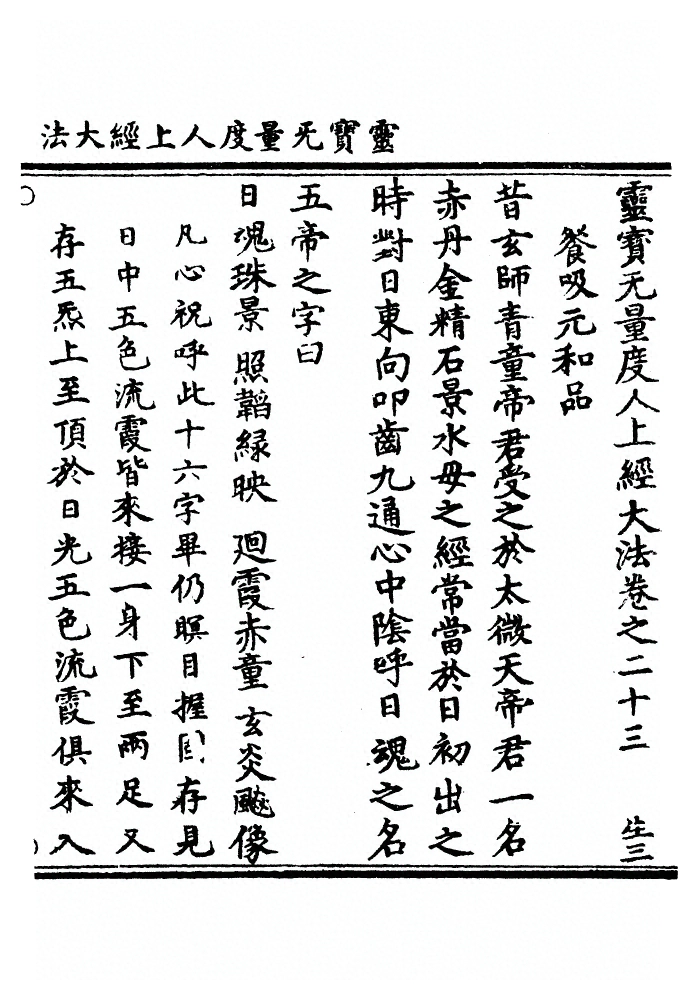 靈寳无量度人上經大法
靈寳无量度人上經大法卷之二十三 生三
餐吸元和品
昔玄師青童帝君受之於太微天帝君一名
赤丹金精石景水母之經常當於日初出之
時對日東向叩齒九通心中陰呼日魂之名
五帝之字曰
日魂珠景 照韜緑映 廻霞赤童 玄炎飈像
凡心祝呼此十六字畢仍瞑目握固存見
日中五色流霞皆來接一身下至兩足又
存五炁上至頂於日光五色流霞俱來入